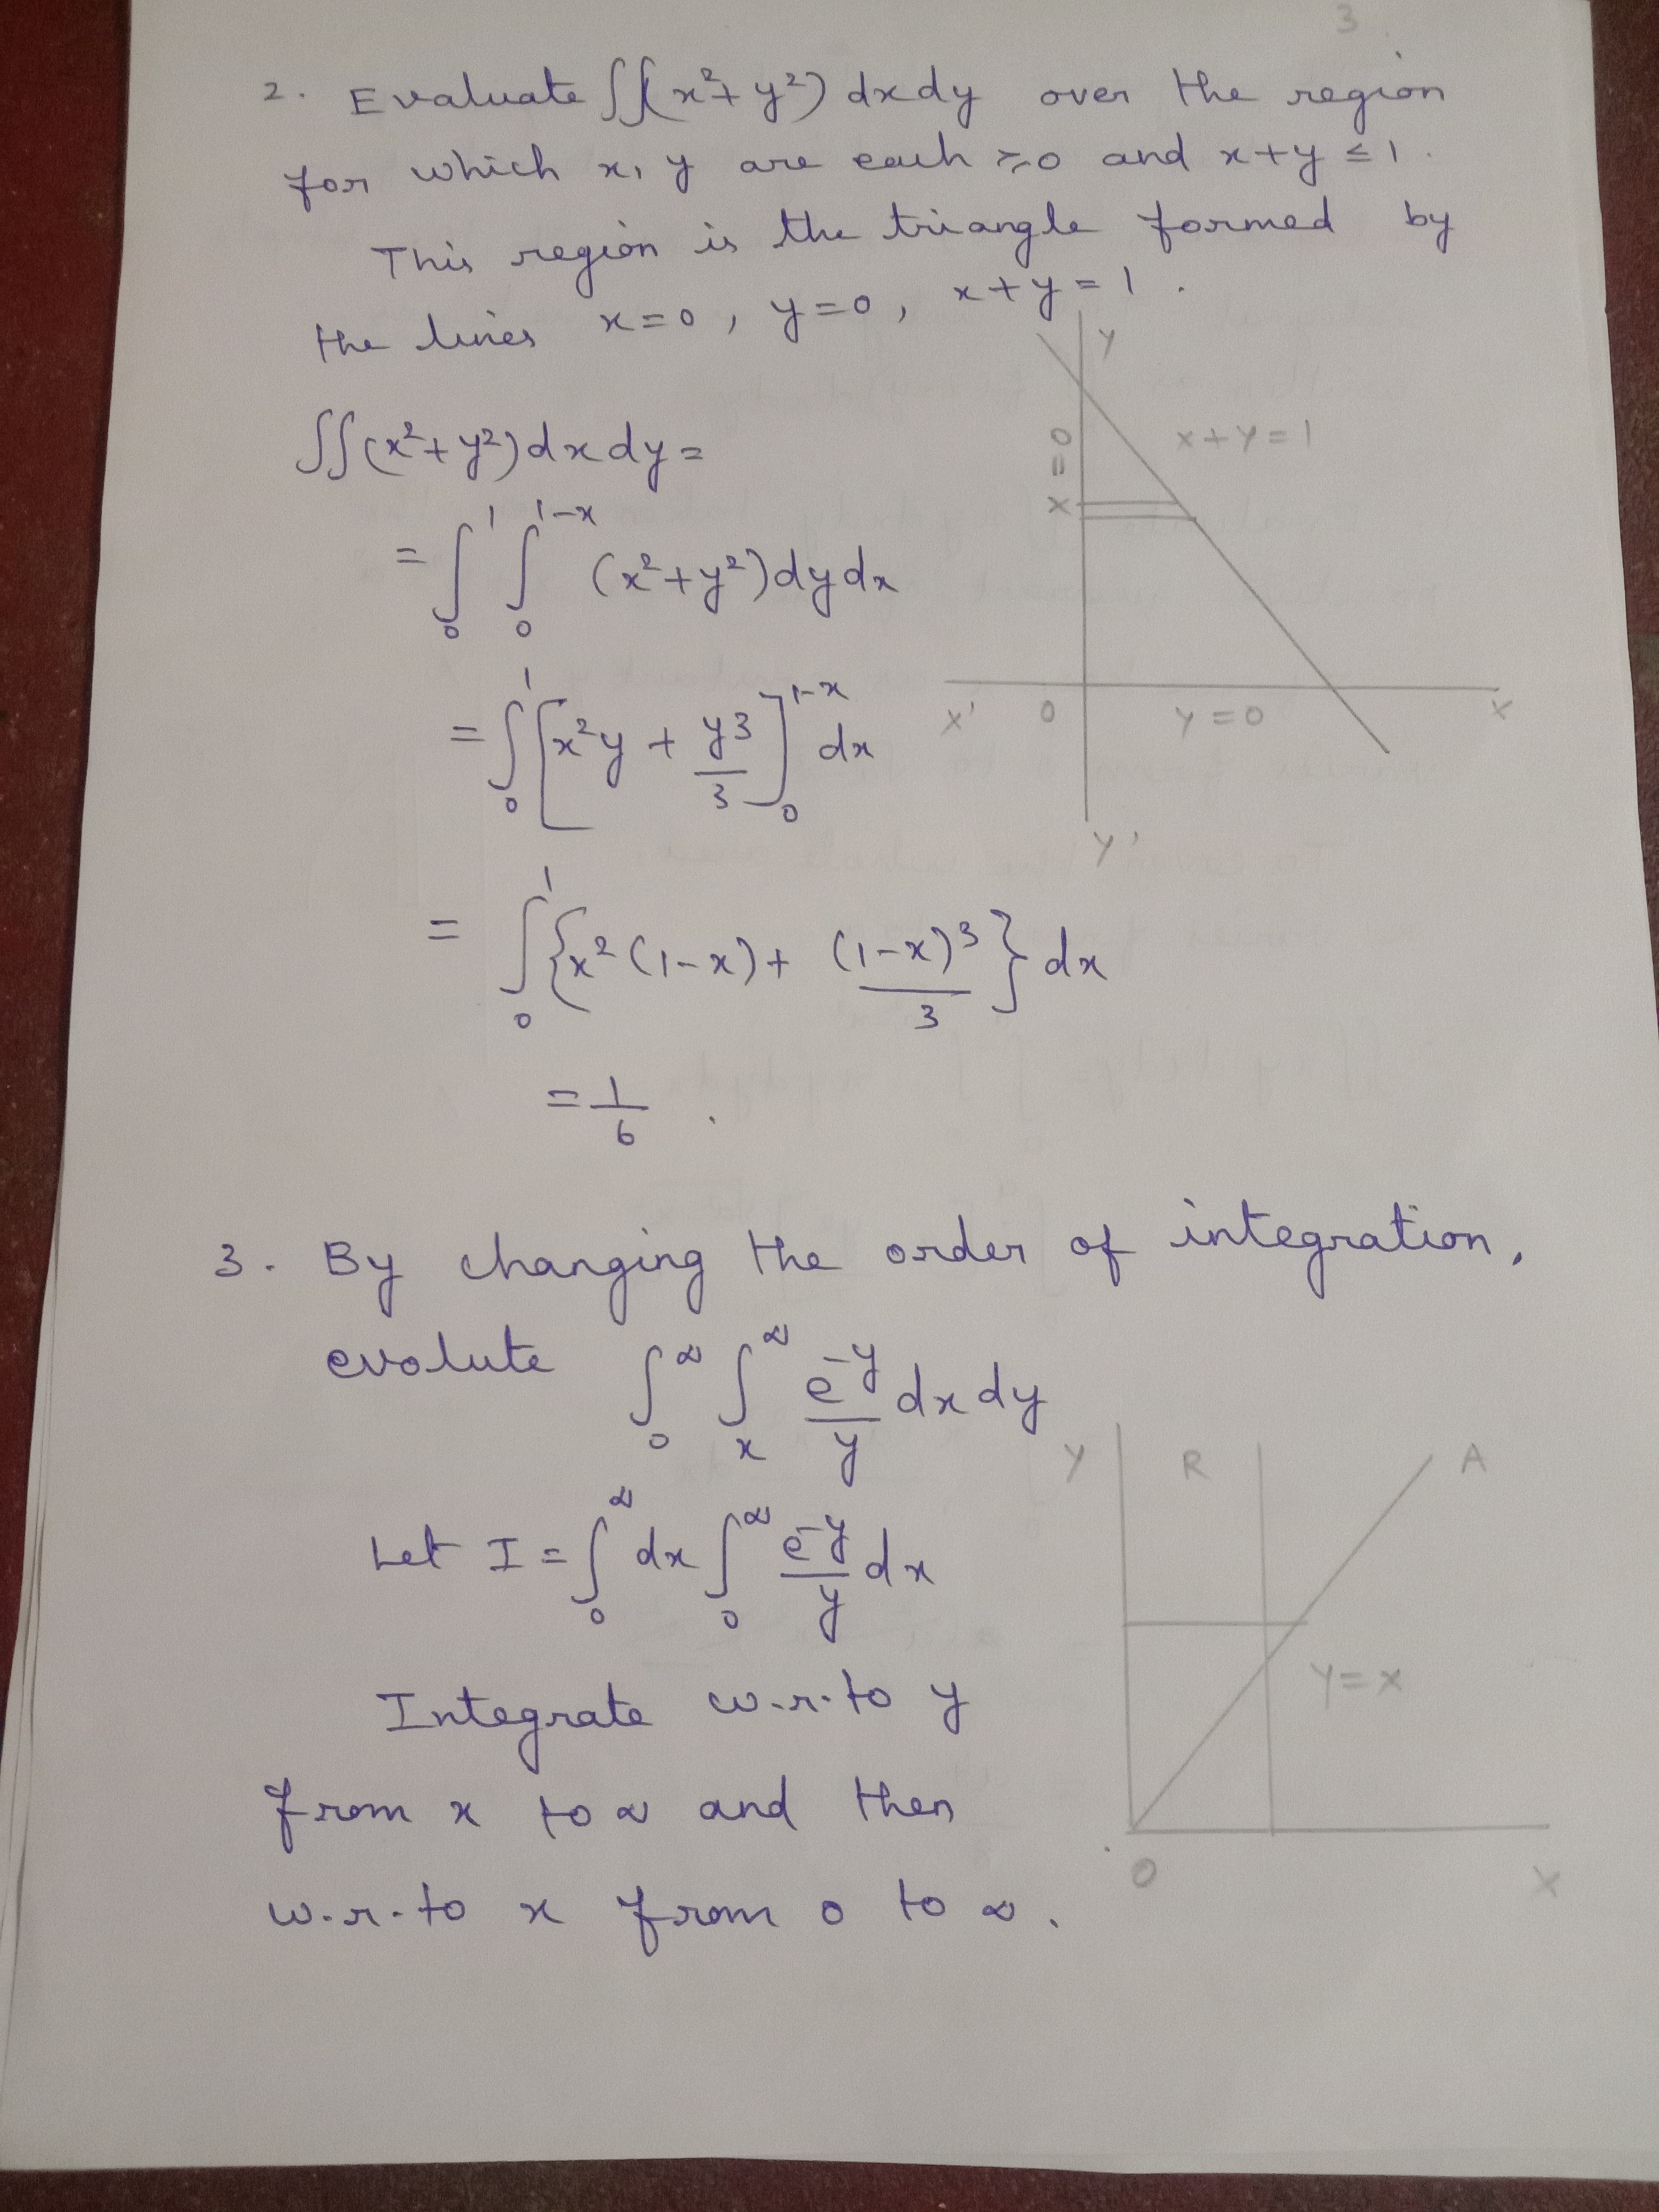 3.
2. Evaluate ∬(x²+ y²) dxdy over the region
for which x, y are each ≥0 and x+y ≤ 1.
This region is the triangle formed by
the lines x=0, y=0, x+y=1.
Y
x+y=1
x=0
∬(x²+y²)dxdy=
= ∫₀¹ ∫₀^{1-x} (x²+y²)dydx
= ∫₀¹ [x²y + y³/3]₀^{1-x} dx
X' O Y=0 X
Y'
= ∫₀¹ {x²(1-x)+ (1-x)³/3} dx
= 1/6 .
3. By changing the order of integration,
evolute ∫₀^∞ ∫ₓ^∞ e^{-y}/y dxdy
Y R A
Let I = ∫₀^∞ dx ∫₀^∞ e^{-y}/y dx
Y=X
Integrate w.r.to y
from x to ∞ and then
O X
w.r.to x from 0 to ∞.